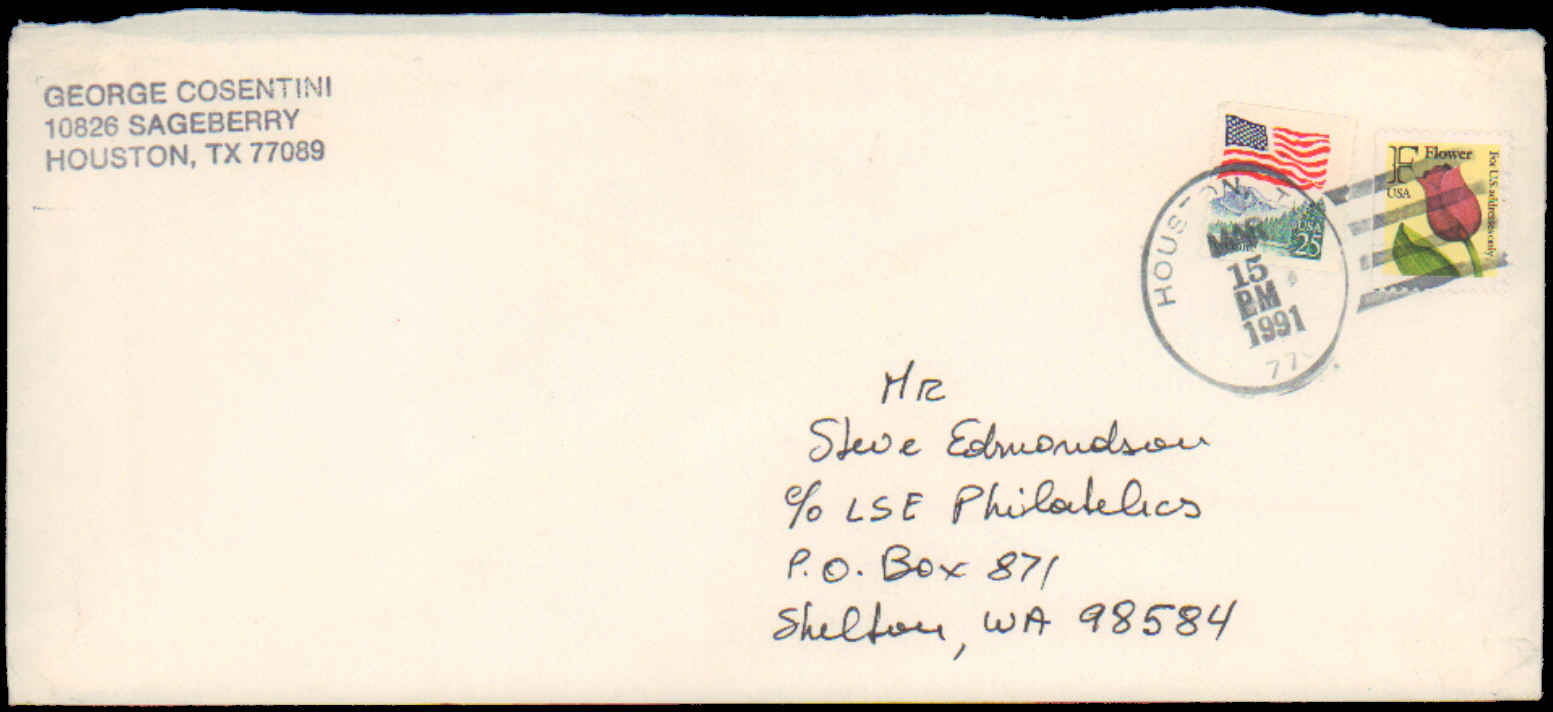 GEORGE COSENTINI
10826 SAGEBERRY
HOUSTON, TX 77089
F Flower
USA
For U.S. addresses only
USA
25
HOUSTON, T
MAR
15
PM
1991
77
Mr
Steve Edmondson
c/o LSE Philatelics
P.O. Box 871
Shelton, WA 98584